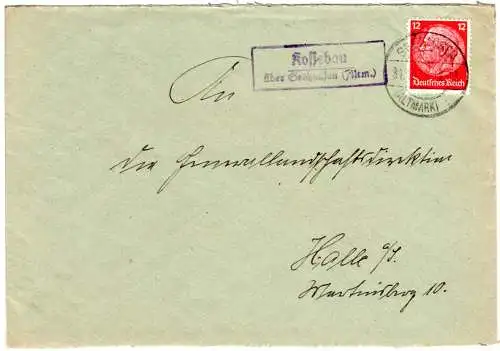 12 12
Deutsches Reich
Kossebau
über Seehausen (Altm.)
(ALTMARK)
An
die Generallandschaftsdirektion
Halle a/S.
Martinsberg 10.